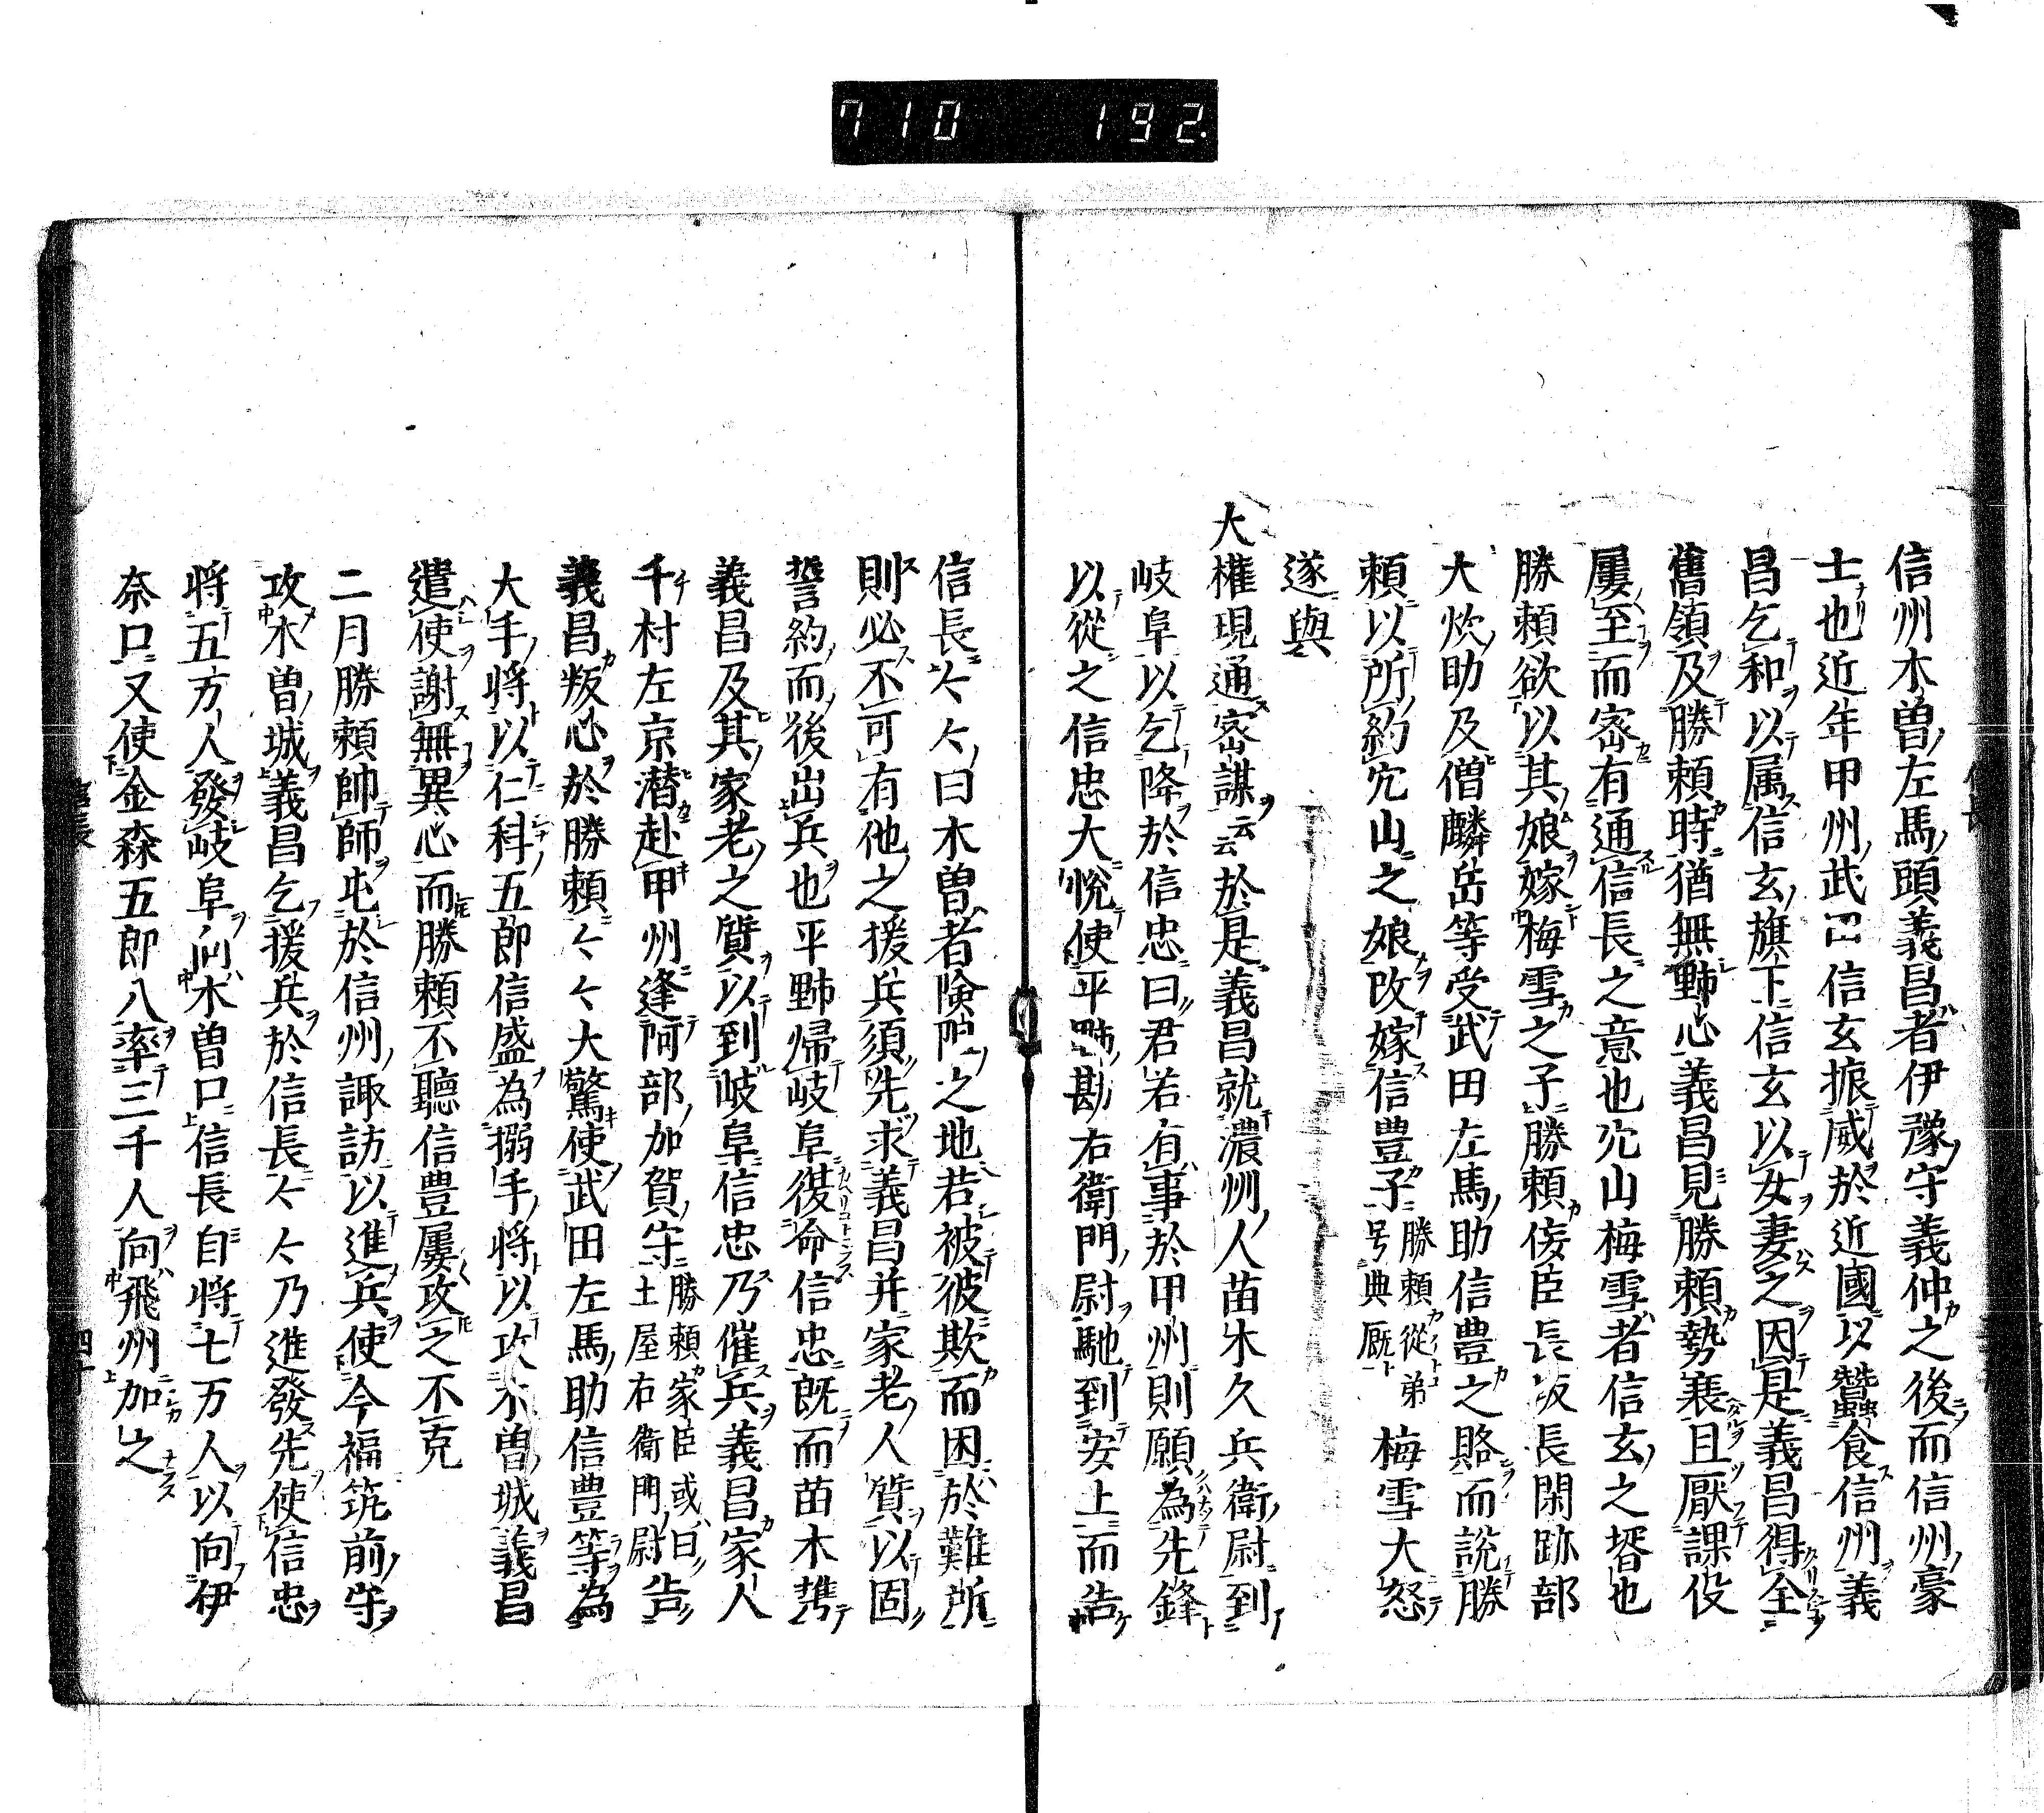 710 192
信州木曽左馬頭義昌者伊豫守義仲之後而信州豪
士也近年甲州武田信玄振威於近國以蠶食信州義
昌乞和以属信玄旗下信玄以女妻之因是義昌得全
舊領及勝頼時猶無野心義昌見勝頼勢衰且厭課役
屢至而密有通信長之意也穴山梅雪者信玄之壻也
勝頼欲以其娘嫁梅雪之子勝頼侫臣長坂長閑跡部
大炊助及僧麟岳等受武田左馬助信豊之賂而説勝
頼以所約穴山之娘改嫁信豊子勝頼從弟号典厩梅雪大怒
遂與
大権現通密謀云云於是義昌就濃州人苗木久兵衛尉到
岐阜以乞降於信忠曰君若有事於甲州則願為先鋒
以從之信忠大悦使平野勘右衛門尉馳到安土而告
信長々々曰木曽者険阻之地若被彼欺而困於難所
則必不可有他之援兵須先求義昌并家老人質以固
誓約而後出兵也平野帰岐阜復命信忠既而苗木携
義昌及其家老之質以到岐阜信忠乃催兵義昌家人
千村左京潜赴甲州逢阿部加賀守勝頼家臣或曰土屋右衛門尉告
義昌叛心於勝頼々々大驚使武田左馬助信豊等為
大手将以仁科五郎信盛為搦手将以攻木曽城義昌
遣使謝無異心而勝頼不聽信豊屢攻之不克
二月勝頼帥師屯於信州諏訪以進兵使今福筑前守
攻木曽城義昌乞援兵於信長々々乃進發先使信忠
将五万人發岐阜向木曽口信長自将七万人以向伊
奈口又使金森五郎八率三千人向飛州加之
信長 四十